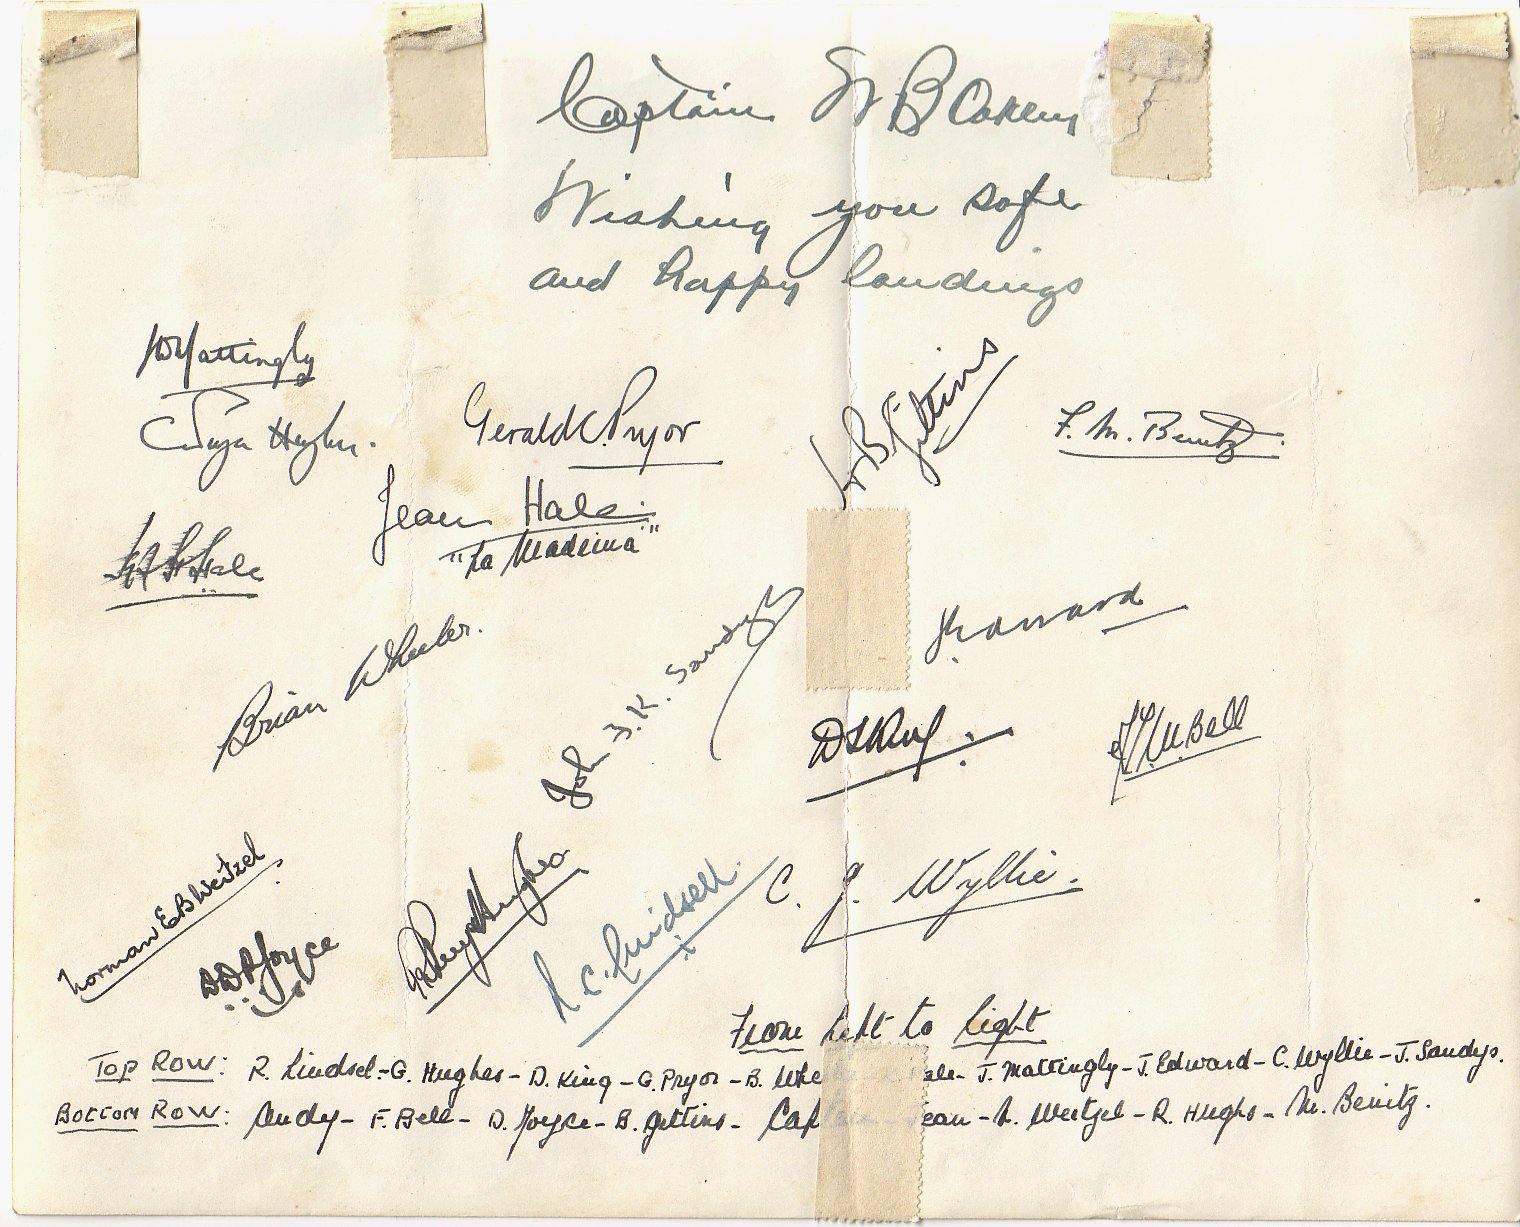 Captain W B Oakley
Wishing you safe
and happy landings
Mattingly
Hughes.
Gerald C. Pryor
W B Gittins
F. M. Benitz.
Jean Hale.
"La Madrina"
Hale
Brian Wheeler.
John J. K. Sandys
D S King.
F. L. M. Bell
Norman E B Weitzel
D D P Joyce
Hughes
R. C. Lindsell
C. J. Wyllie.
From Left to Right
Top Row: R. Lindsel - G. Hughes - D. King - G. Pryor - B. Whe ale - J. Mattingly - J. Edward - C. Wyllie - J. Sandys.
Bottom Row: Andy - F. Bell - D. Joyce - B. Gittins - Captain - Jean - N. Weitzel - R. Hughs - M. Benitz.